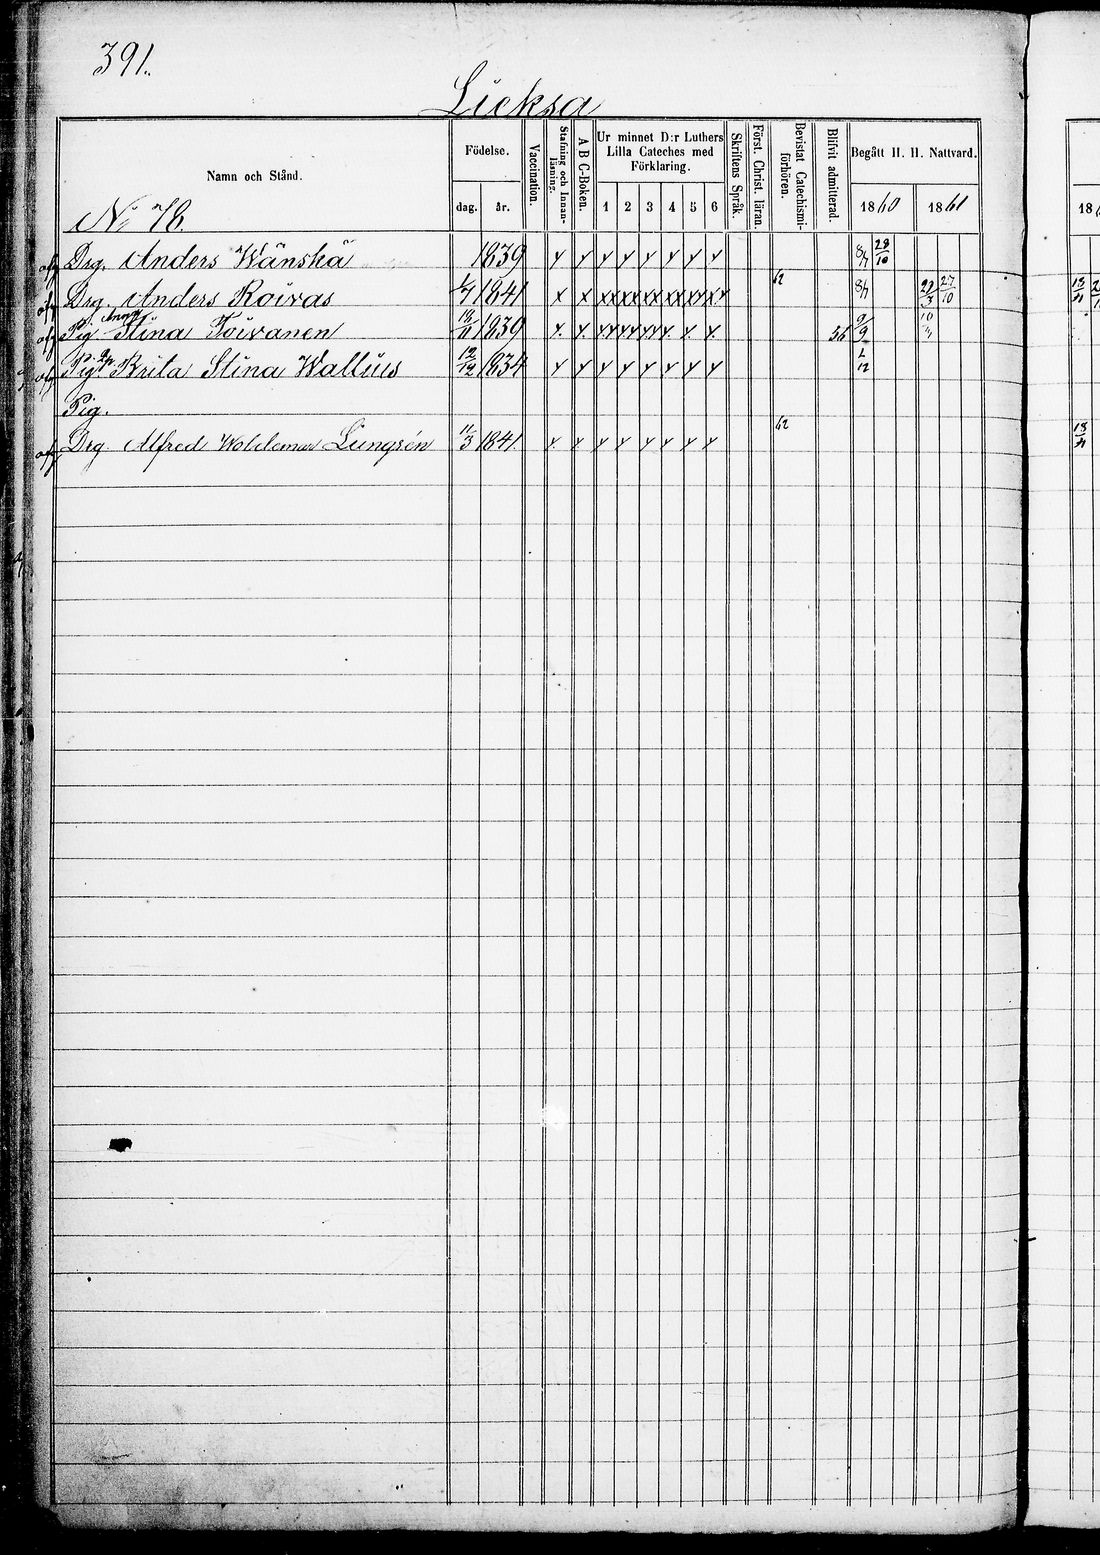 391.
Lieksa
Namn och Stånd.
Födelse.
dag. år.
Vaccination.
Stafning och Innanläsning.
A B C-Boken.
Ur minnet D:r Luthers
Lilla Cateches med
Förklaring.
1 2 3 4 5 6
Skriftens Språk.
Först. Christ. läran.
Bevistat Catechismi-
förhören.
Blifvit admitterad.
Begått H. H. Nattvard.
1860 1861
No 78.
Drg. Anders Wänskä 1839 x x x x x x x x 8/4 28/10
Drg. Anders Roivas 1841 x x xx xx xx xx xx xx 62 8/4 22/3 27/10
Pig Anna Stina Toivanen 18/11 1839 x x xx xx xx x x x 56 9/9
Pig. Brita Stina Wallius 12/12 1834 x x x x x x x x 2/12
Pig.
Drg. Alfred Woldemar Lungrén 11/3 1841 x x x x x x x x 62 13/4